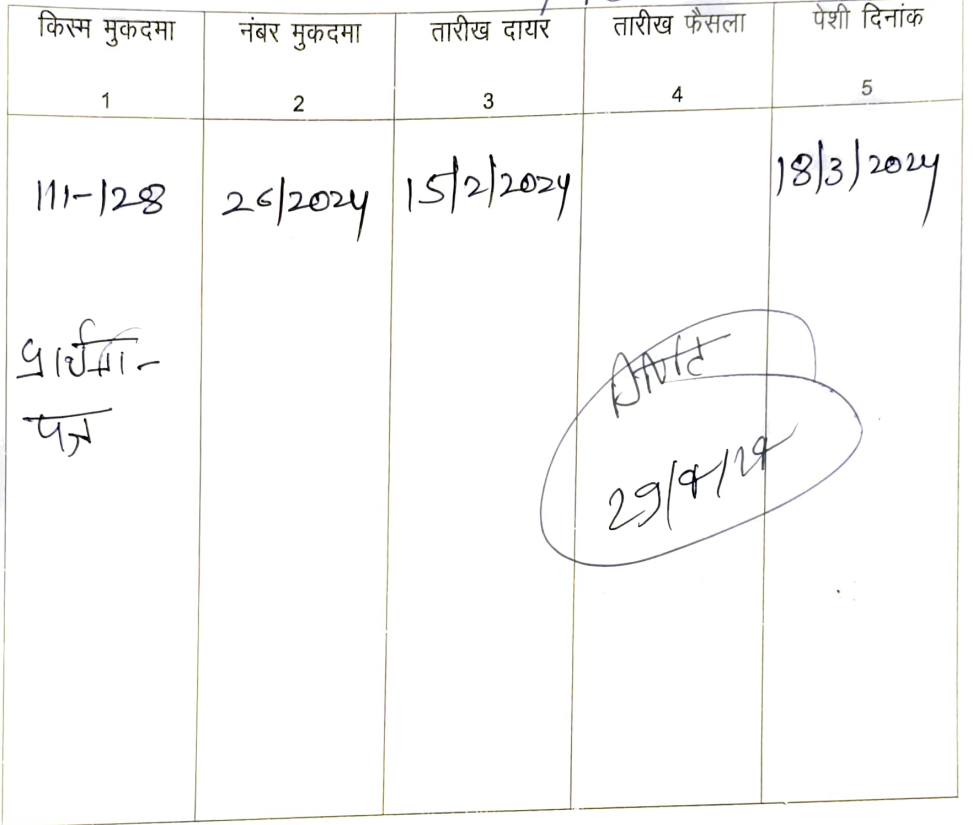 किस्म मुकदमा नंबर मुकदमा तारीख दायर तारीख फैसला पेशी दिनांक
1 2 3 4 5
111-128 26/2024 15/2/2024 18/3/2024
प्रार्थना-
पत्र
29/4/24